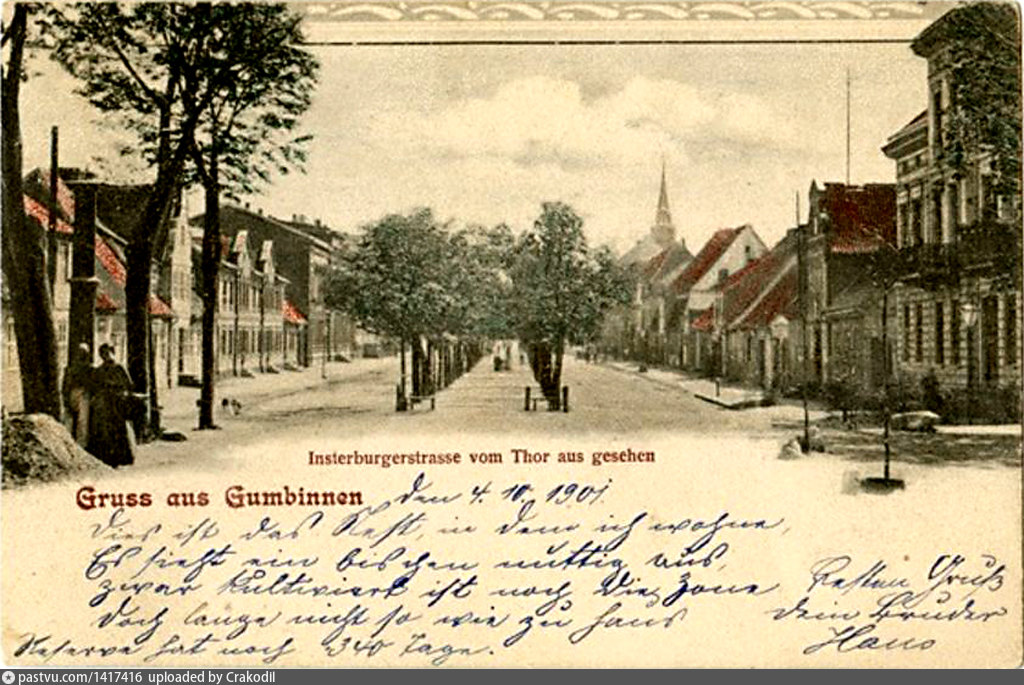 Insterburgerstrasse vom Thor aus gesehen
Gruss aus Gumbinnen
den 4. 10. 1901
Dies ist das Nest, in dem ich wohne,
Es sieht ein bischen aus,
zwar kultiviert ist noch die Zone
doch lange nicht so wie zu haus
Reserve hat noch 340 Tage.
Besten Gruß
dein Bruder
Hans
pastvu.com/1417416 uploaded by Crakodil